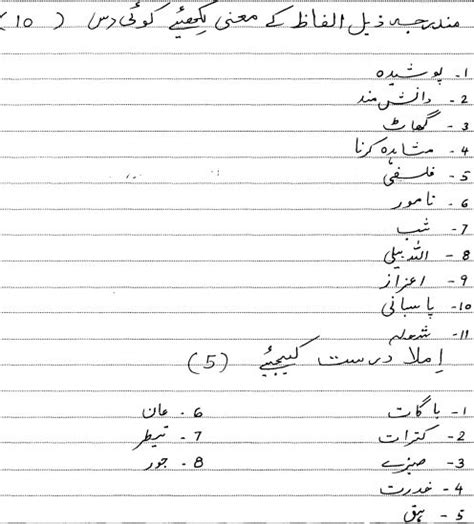 مندرجہ ذیل الفاظ کے معنی لکھیئے کوئی دس ( 10 )
1- پوشیدہ
2- دانش مند
3- گھاٹ
4- مشاہدہ کرنا
5- فلسفی
6- نامور
7- شب
8- اللہ بیلی
9- اعزاز
10- پاسبانی
11- شعولہ
اِملا درست کیجیئے (5)
1- باگات 6. عان
2- کترات 7. تیطر
3- صبزے 8. جور
4- غدرت
5- ہق